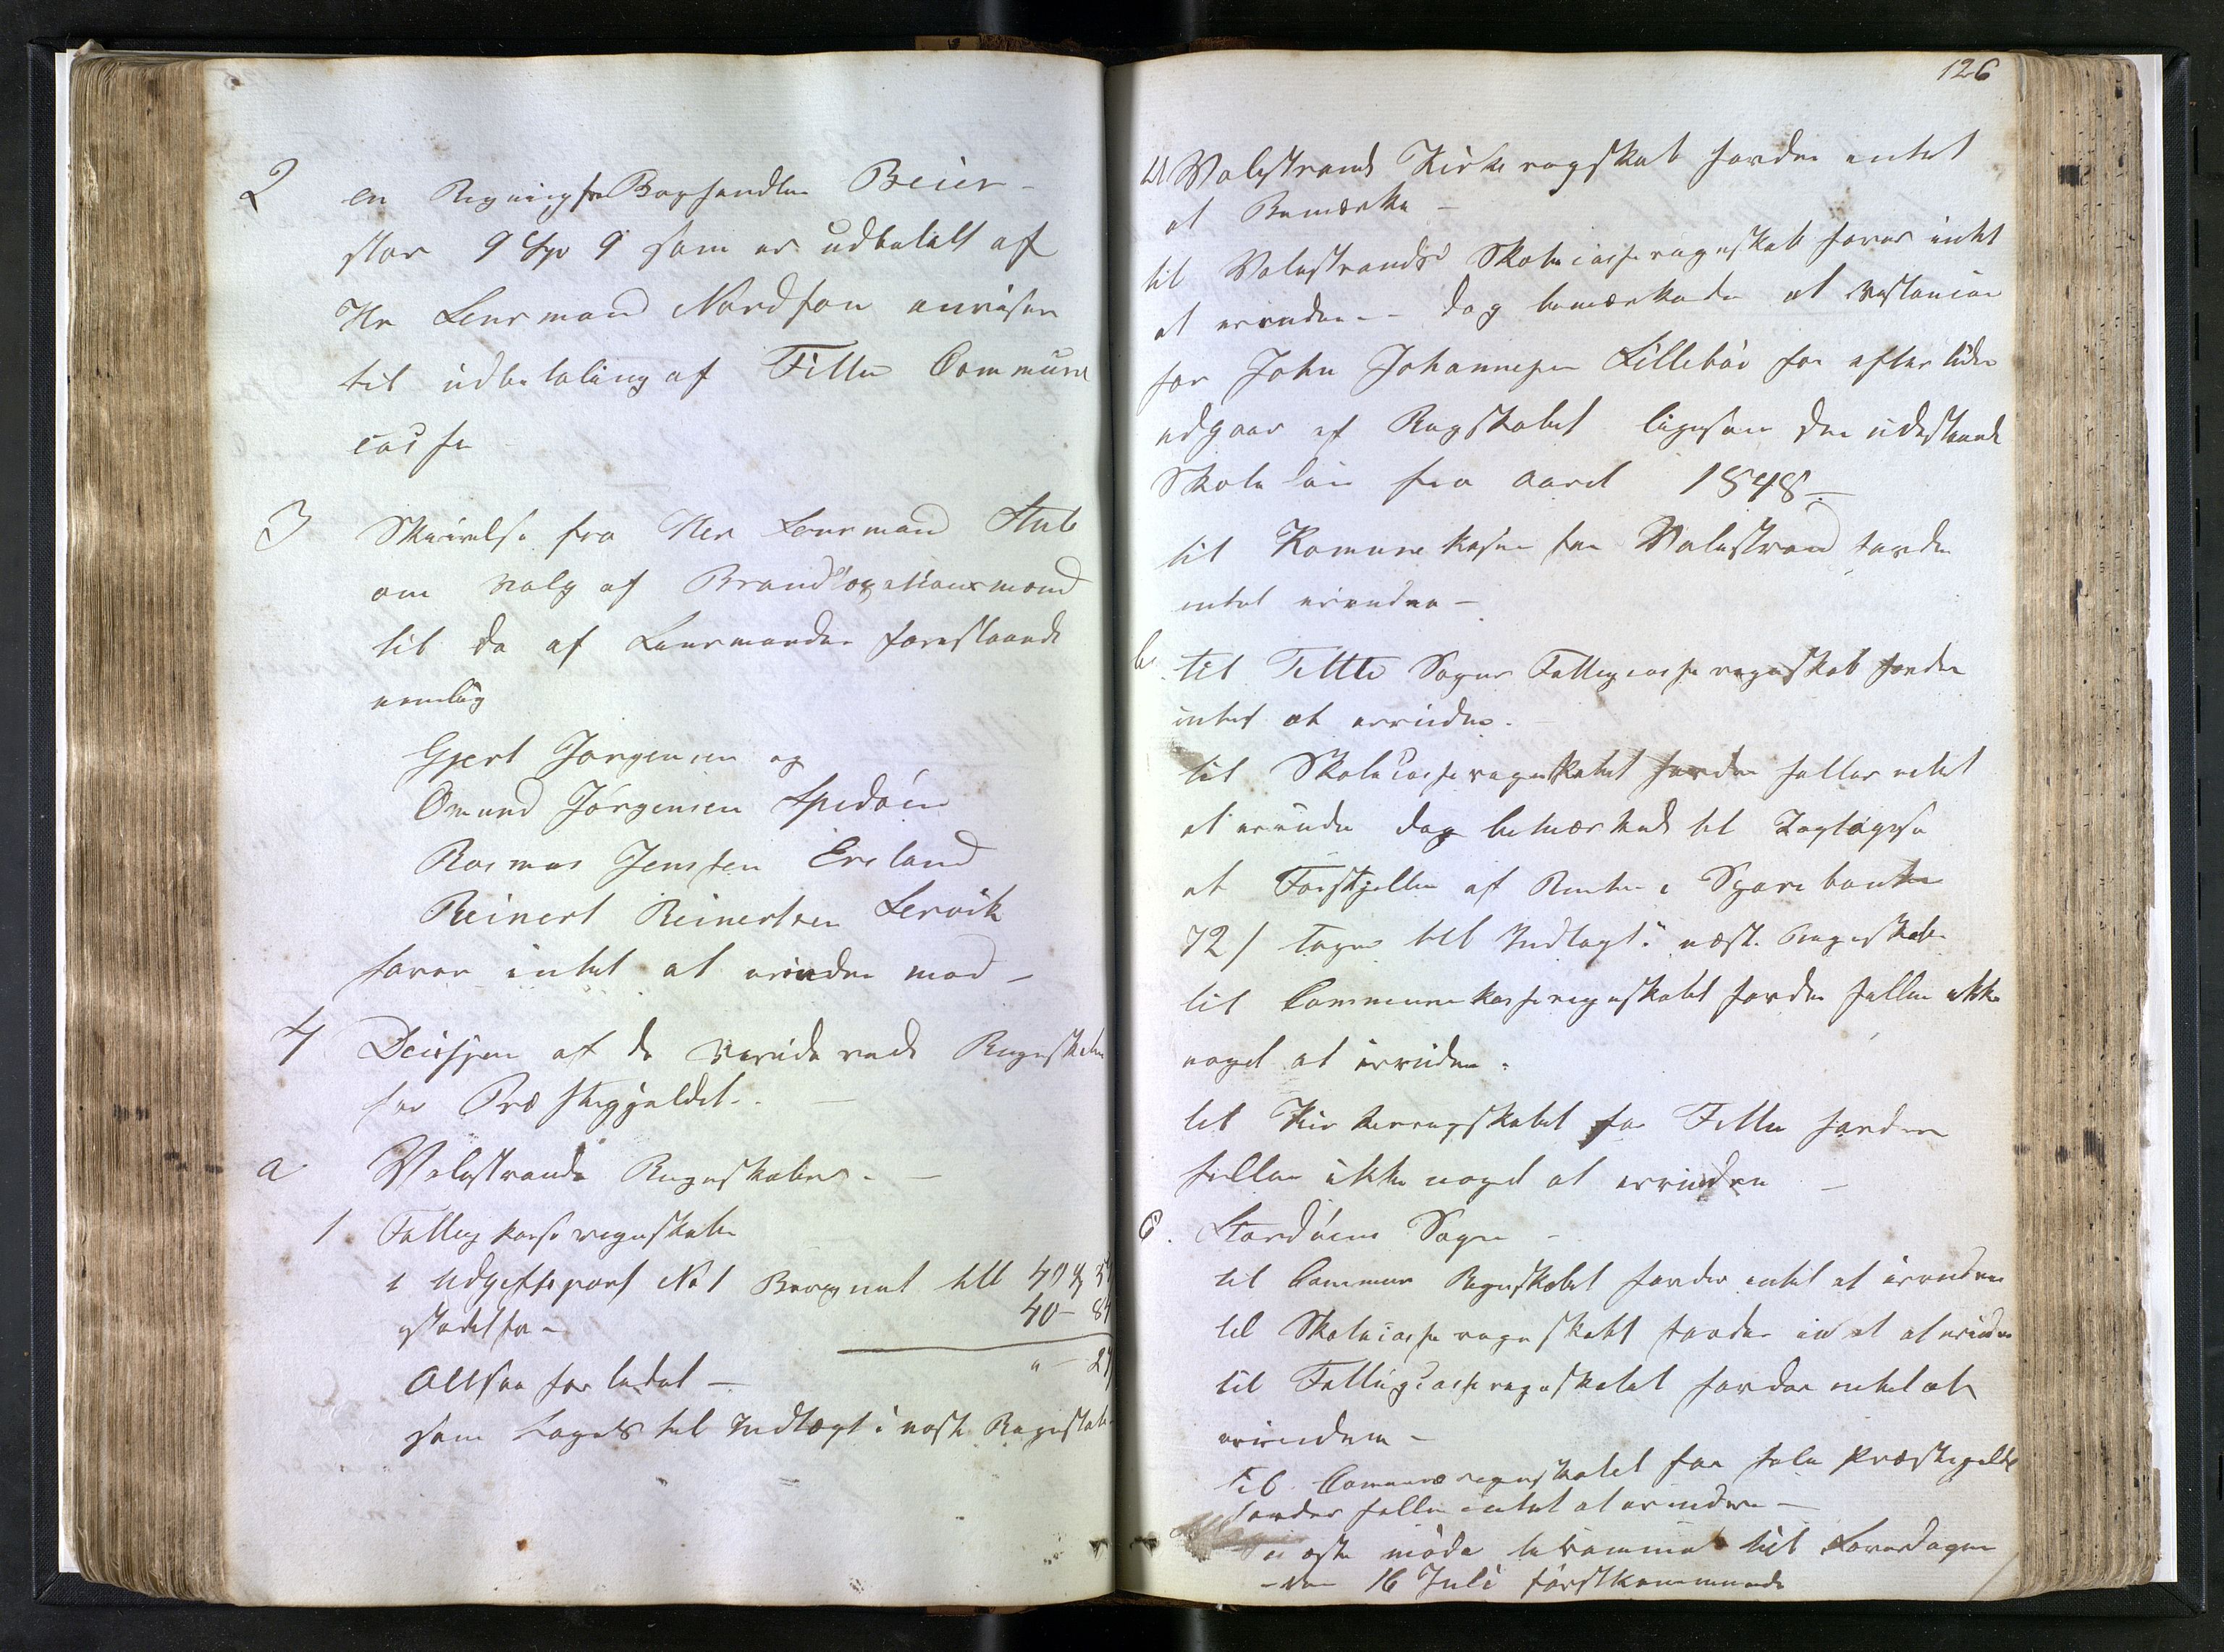 2 en Regning fra Boghandler Beier
stor 9 Spd 9 som er udbetalt af
Hr Lensmand Nordson anvises
til udbetaling af Fitie Commune
casse
3 Skrivelse fra Her Lensmand Stub
om Valg af Brandtaxationsmænd
til de af Lensmanden foreslaaede
nemlig
Gjert Jørgensen og
Omund Jørgensen Spidøen
Rasmus Jenssen Eveland
Reinert Reinertsen Lervik
haver intet at erindre mod –
4 Decisjon af de reviderede Regnskaber
for Præstegjeldet. –
a Valestrands Regnskaber. –
1 Fattigkasseregnskabet
i Udgiftspost No 1 Beregnet till 41
istedetfor – 40 – 84
Altsaa for ledet – " – 27
som tages til Indtægt i næste Regnskab
126
Valestrands Kirkeregskab havdes intet
at Bemærke –
til Valestrands Skolecasseregnskab haves intet
at erindre – dog bemærkede at restancen
for John Johannesen Lillebøe for efter tiden
udgaar af Regskabet ligesom den udestaaende
Skole løn fra aaret 1848 –
til Komunekassen for Valestrand havdes
intet erindre –
b. til Fittie Sogns Fattigcasseregnskab havdes
intet at erindre. –
til Skolecasseregnskabet havdes heller intet
at erindre dog bemærkedes til Iagtagelse
at Forskjellen af Renten i Sparebanken
72 / tages till Indtægt i næste Regnskab
til Communekasseregnskabet havdes heller ikke
noget at erindre.
til Kirkeregskabet for Fittie havdes
heller ikke noget at erindre –
c. Stordøens Sogn –
til Commune Regnskabet havdes intet at erindre
til Skolecasseregnskabet havdes intet at erindre
til Fattigcasseregnskabet havdes intet at
erindre –
Til Communeregnskabet for hele Præstegjeldet
havdes heller intet at erindre –
næste møde berammet til Løverdagen
– den 16 Juli førstkommende